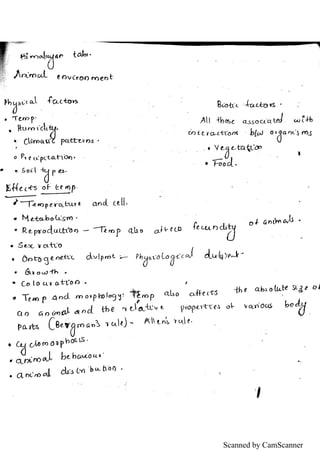 Himalayan tahr.
Animal environment
Physical factors
• Temp.
• Humidity.
• Climatic patterns.
o Precipitation.
• Soil types.
Biotic factors.
All those associated with
interactions b/w organisms
• Vegetation
• Food.
Effects of temp.
• Temperature and cell.
• Metabolism.
• Reproduction – Temp also affects fecundity of animals.
• Sex ratio
• Ontogenetic dvlpmt :– Physiological dvlpmt.
• Growth.
• Colouration.
• Temp and morphology: temp also affects the absolute size of
an animal and the relative properties of various body
parts (Bergman's rule) – Allen's rule.
• Cyclomorphosis.
• animal behaviour
• animal distribution.
1
Scanned by CamScanner